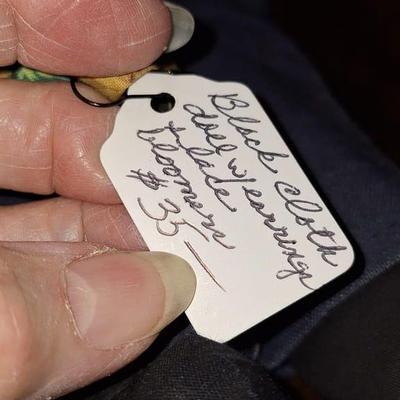 Black Cloth
doll w/ earrings
+ lace
bloomers
$35—